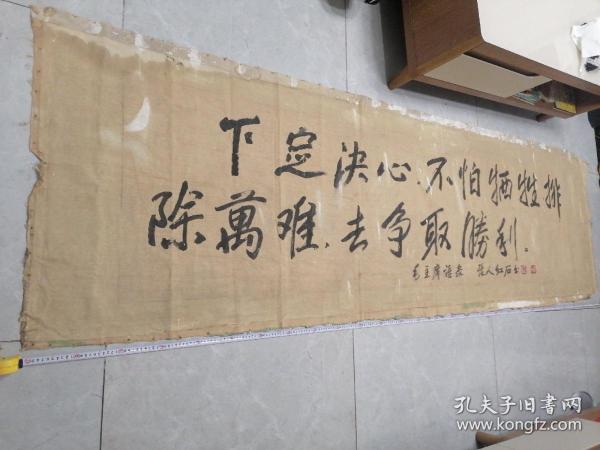 下定决心、不怕牺牲排
除萬难、去争取勝利。
毛主席语录 张人红石书
孔夫子旧书网
www.kongfz.com